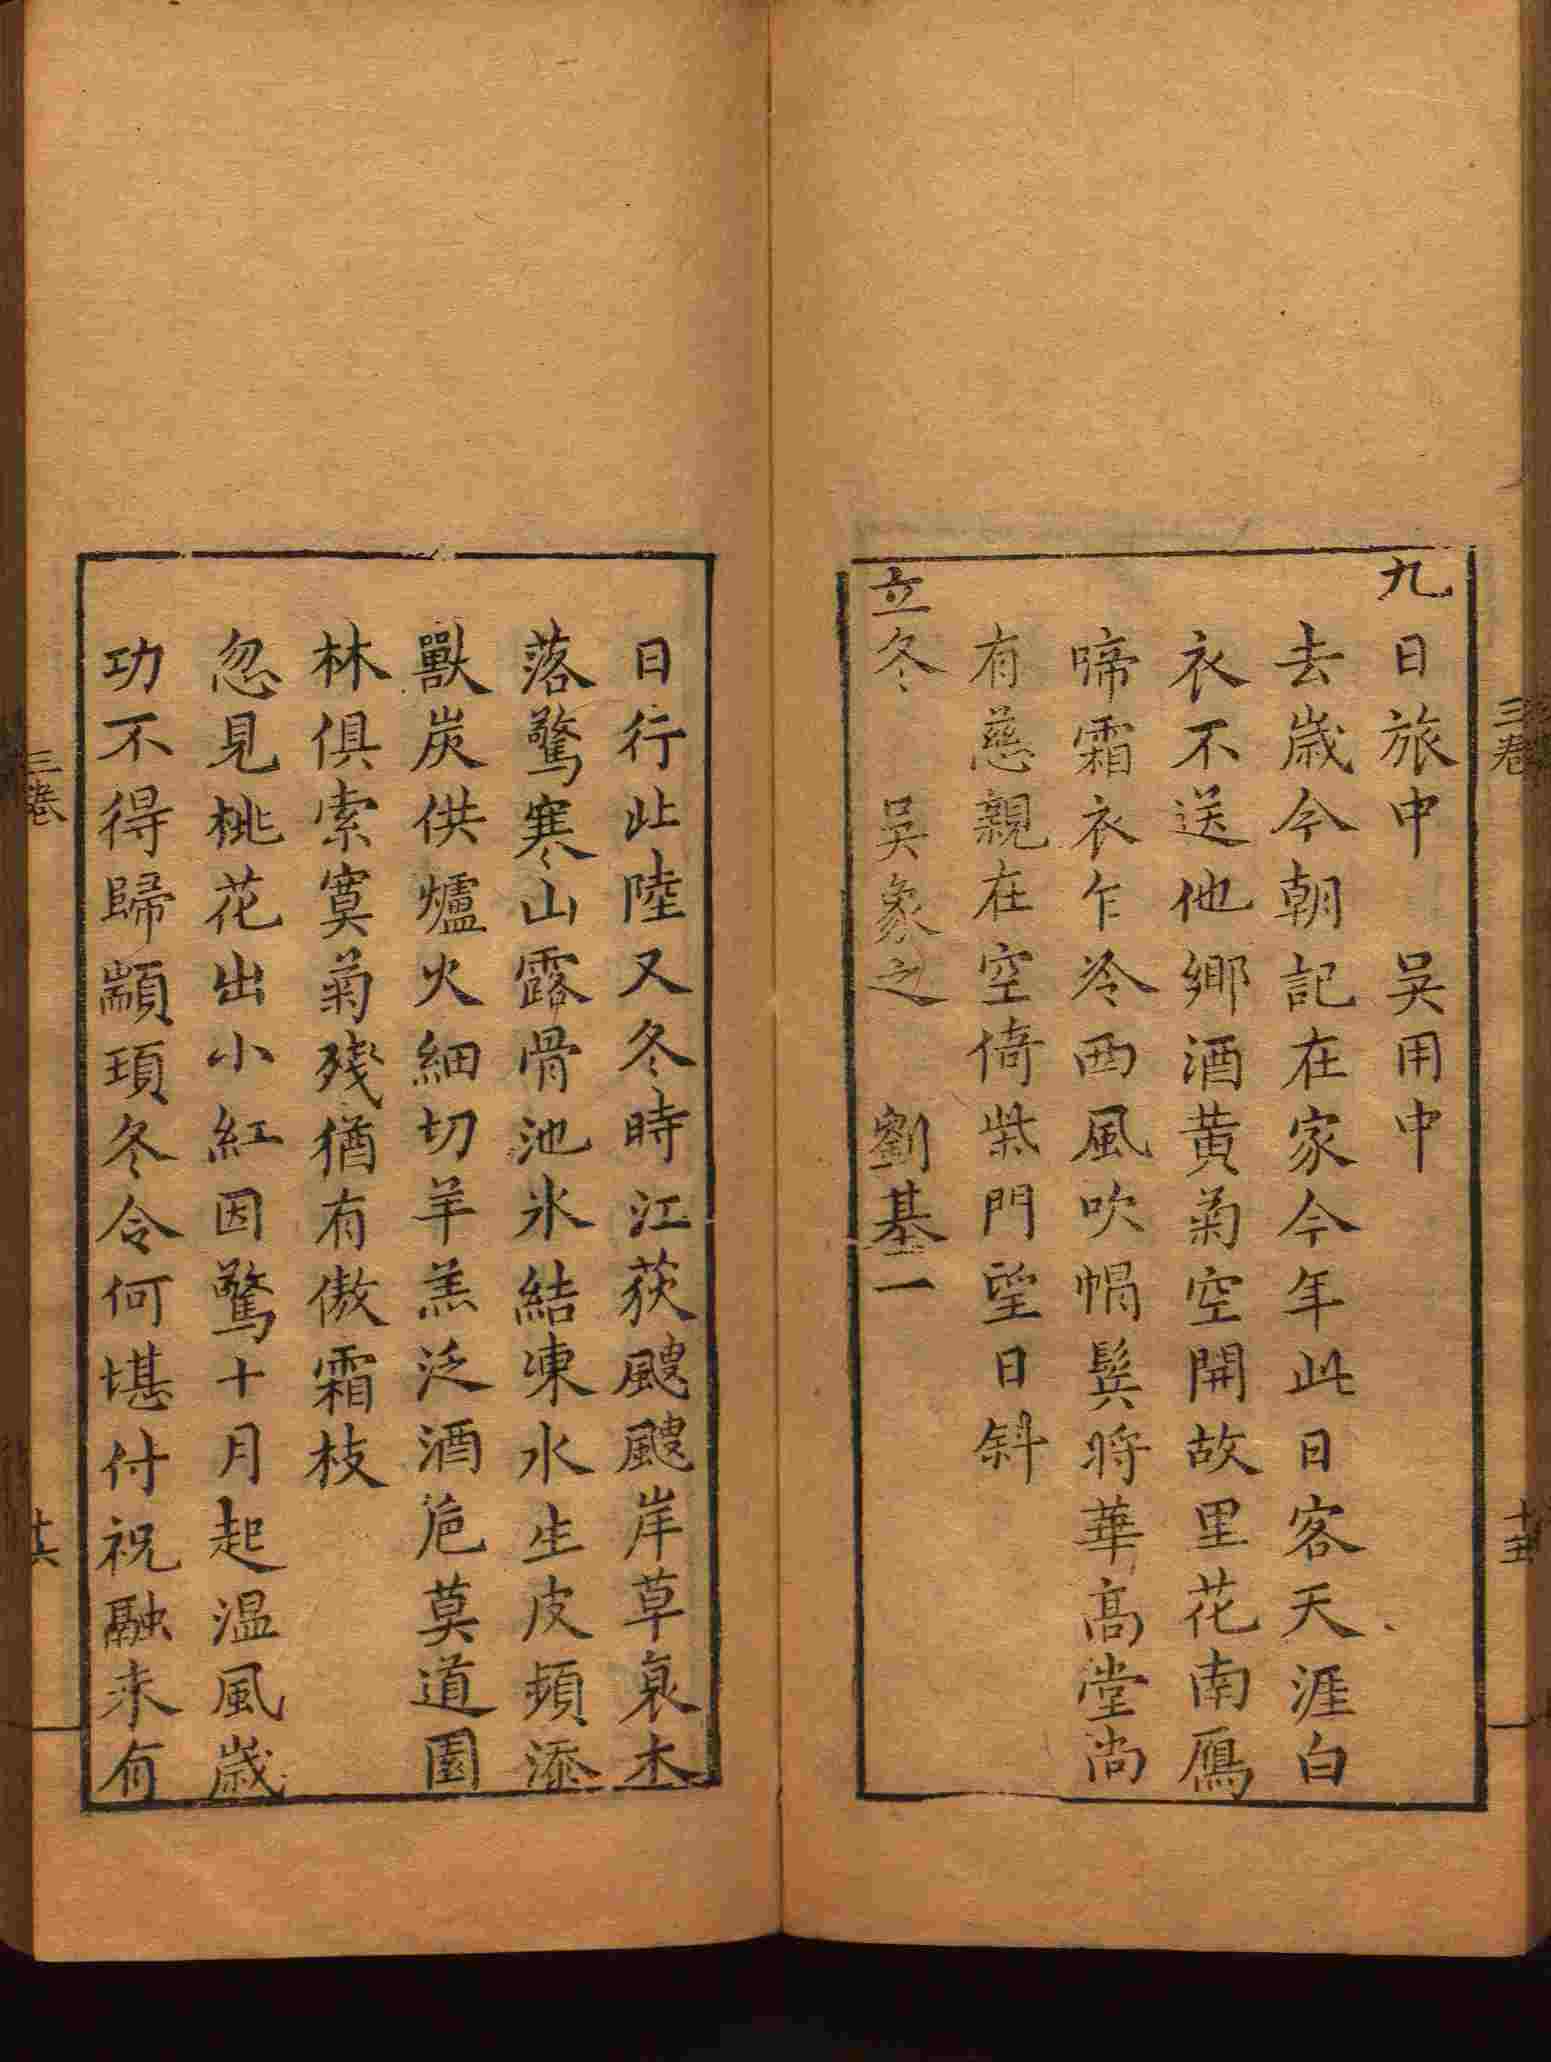 九日旅中　吳用中
去歲今朝記在家今年此日客天涯白
衣不送他鄉酒黃菊空開故里花南鴈
啼霜衣乍冷西風吹帽鬂將華高堂尚
有慈親在空倚柴門望日斜
立冬　吳象之　劉基一
日行北陸又冬時江荻颼颼岸草衰木
落驚寒山露骨池氷結凍水生皮頻添
獸炭供爐火細切羊羔泛酒巵莫道園
林俱索寞菊殘猶有傲霜枝
忽見桃花出小紅因驚十月起溫風歲
功不得歸顓頊冬令何堪付祝融未有
三卷
三卷
十六